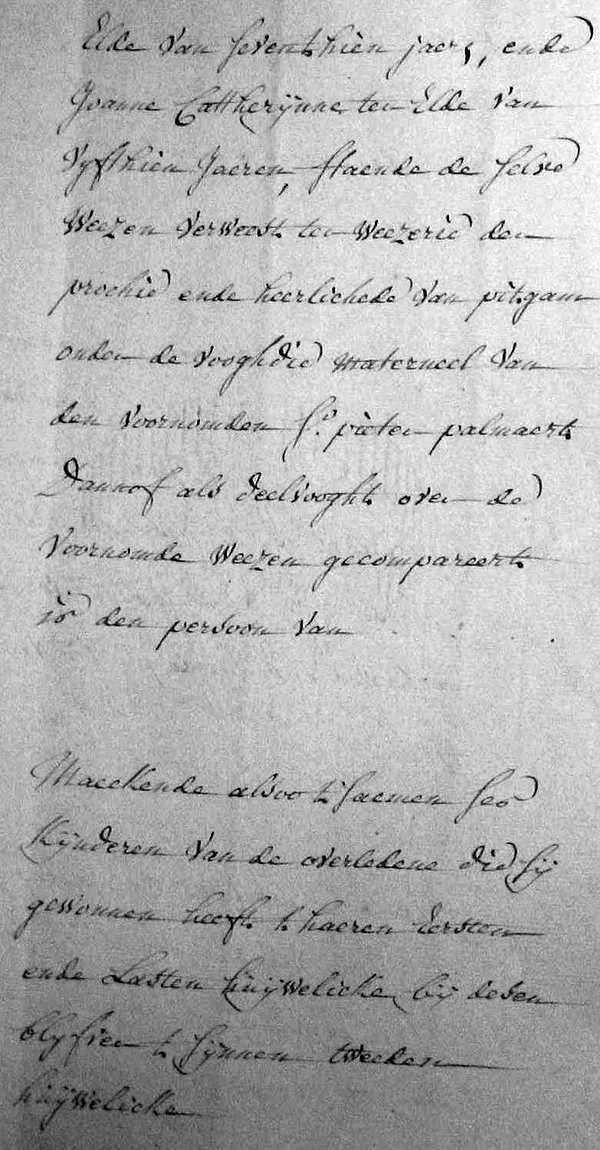 Elde van seventhien jaers, ende
Joanne Cattherÿnne ten Elde van
vyfthien Jaeren, staende de selve
Weezen verweest ter Weezerie der
prochie ende heerlichede van pitgam
onder de vooghdie materneel van
den voornomden Sr. pieter palmaert
Dannof als deelvooght over de
voornomde Weezen gecompareert
is den persoon van
Maeckende alsoo t'saemen ses
Kÿnderen van de overledene die sÿ
gewonnen heeft t haeren Eersten
ende Lasten huÿwelicke, bÿ desen
blyfver t sÿnnen tweeden
huÿwelicke